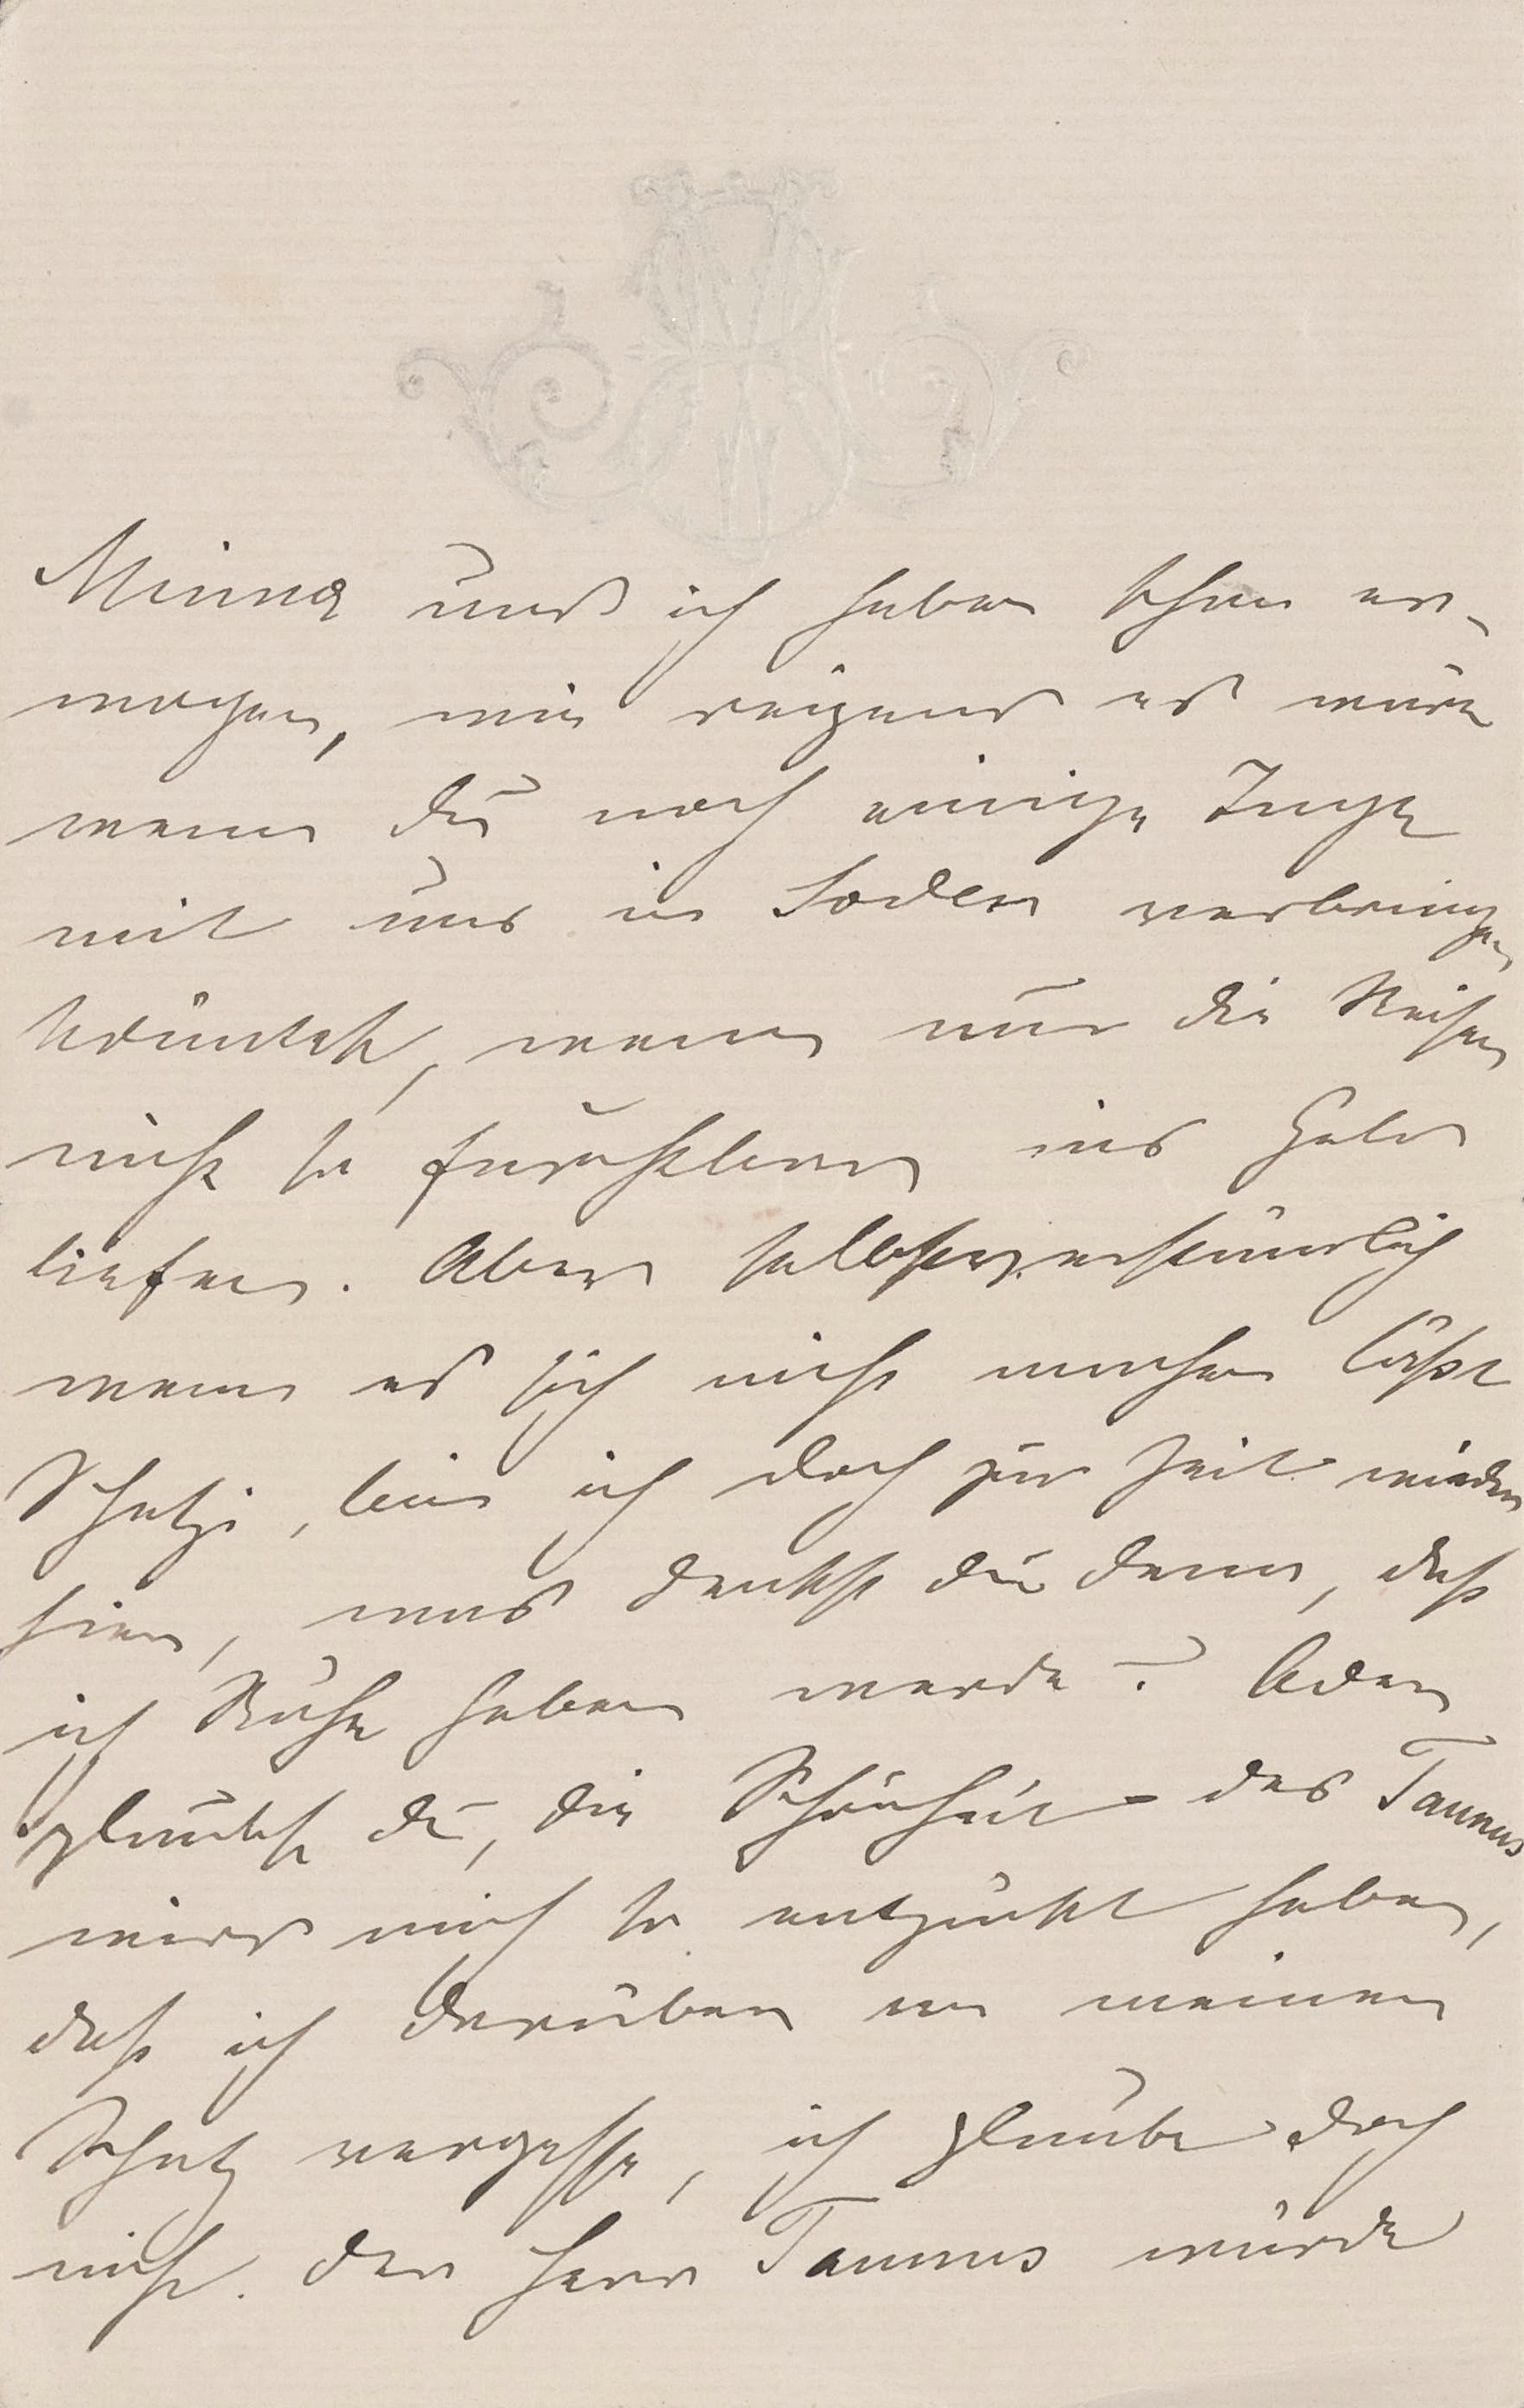 Minna und ich haben schon er-
wogen, wie reizend es wäre
wenn du noch einige Tage
mit uns in Soden verbringen
könntest, wenn nur die Reisen
nicht so furchtbar ins Geld
liefen. Aber selbstverständlich
wenn es sich nicht machen läßt
Schatzi, bin ich doch zur Zeit wieder
hier, was denkst du denn, daß
ich Ruhe haben werde? Oder
glaubst du, die Schönheit des Taunus
wird mich so entzückt haben,
daß ich darüber an meinen
Schatz vergesse, ich glaube doch
nicht. Der Herr Taunus würde